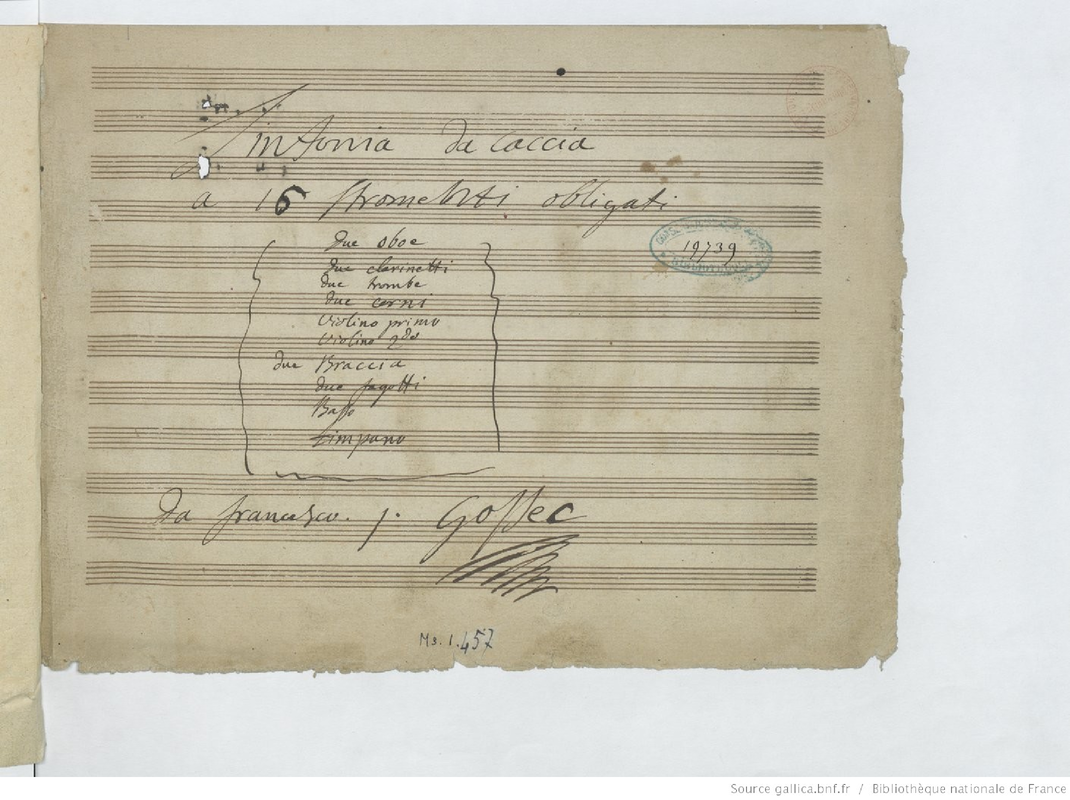 Sinfonia da Caccia
a 16 stromenti obligati
due oboe
19739
due clarinetti
due trombe
due corni
Violino primo
Violino 2do
due Braccia
due fagotti
Basso
timpano
da francesco. j. Gossec
Ms. 1.457
Source gallica.bnf.fr / Bibliothèque nationale de France